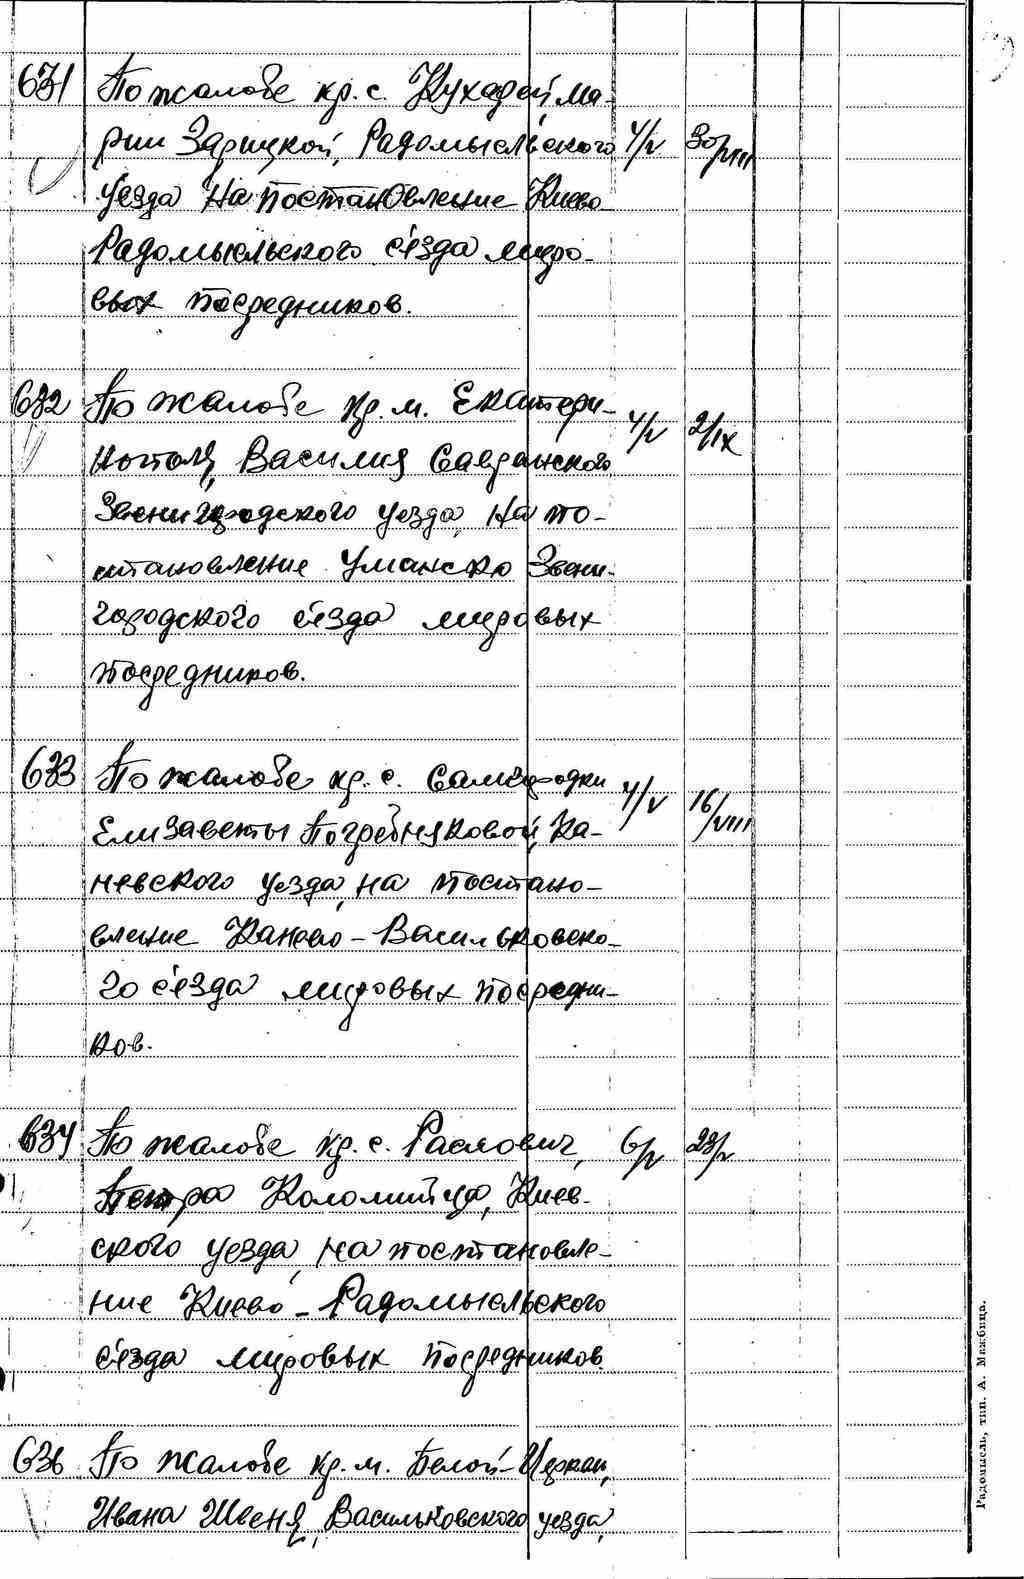 631 По жалобе кр. с. Кухарей Ма-
рии Зарицкой, Радомысльского 4/V 30/VIII
уезда на постановление Киево
Радомысльского с'езда миро-
вых посредников.
632 По жалобе кр. м. Екатери-
нополя, Василия 4/V 2/IX
Звенигородского уезда, на по-
становление Уманско Звени-
городского с'езда мировых
посредников.
633 По жалобе кр. с. Самгородки
Елизаветы Погребняковой, Ка- 4/V 16/VIII
невского уезда, на постано-
вление Канево-Васильковско-
го с'езда мировых посредни-
ков.
634 По жалобе кр. с. Раслович, 6/V 23/V
Петра Коломийца, Киев-
ского уезда, на постановле-
ние Киево-Радомысльского
с'езда мировых посредников.
636 По жалобе кр. м. Белой-Церкви,
Ивана Швеня, Васильковского уезда,
Радомысль, тип. А. Межбица.